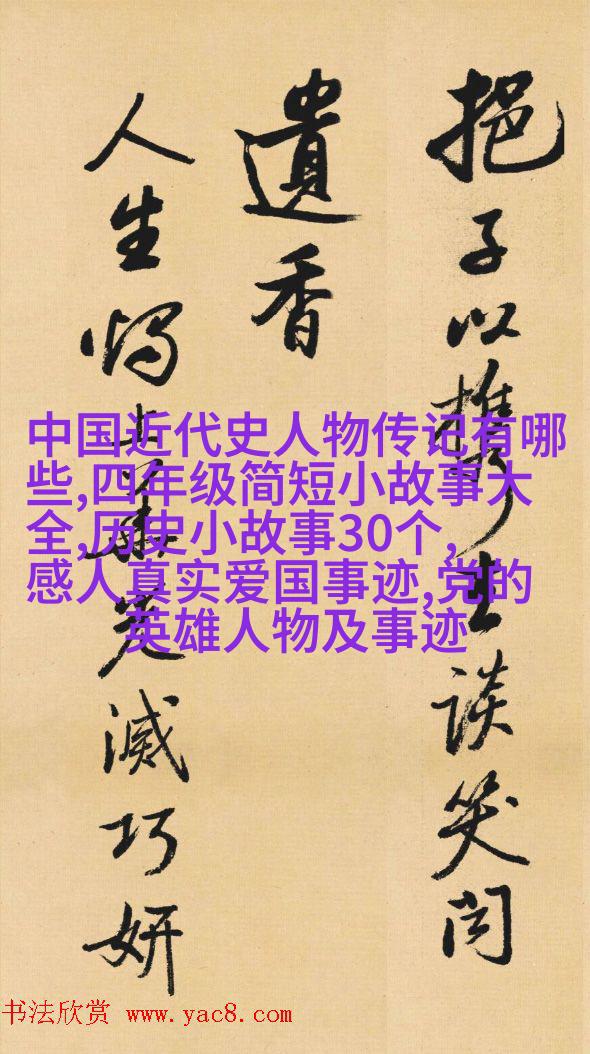 挹子以携生谈笑
遺香
人生滅巧妍
中国近代史人物传记有哪
些,四年级简短小故事大
全,历史小故事30个,
感人真实爱国事迹,党的
英雄人物及事迹
书法欣赏 www.yac8.com